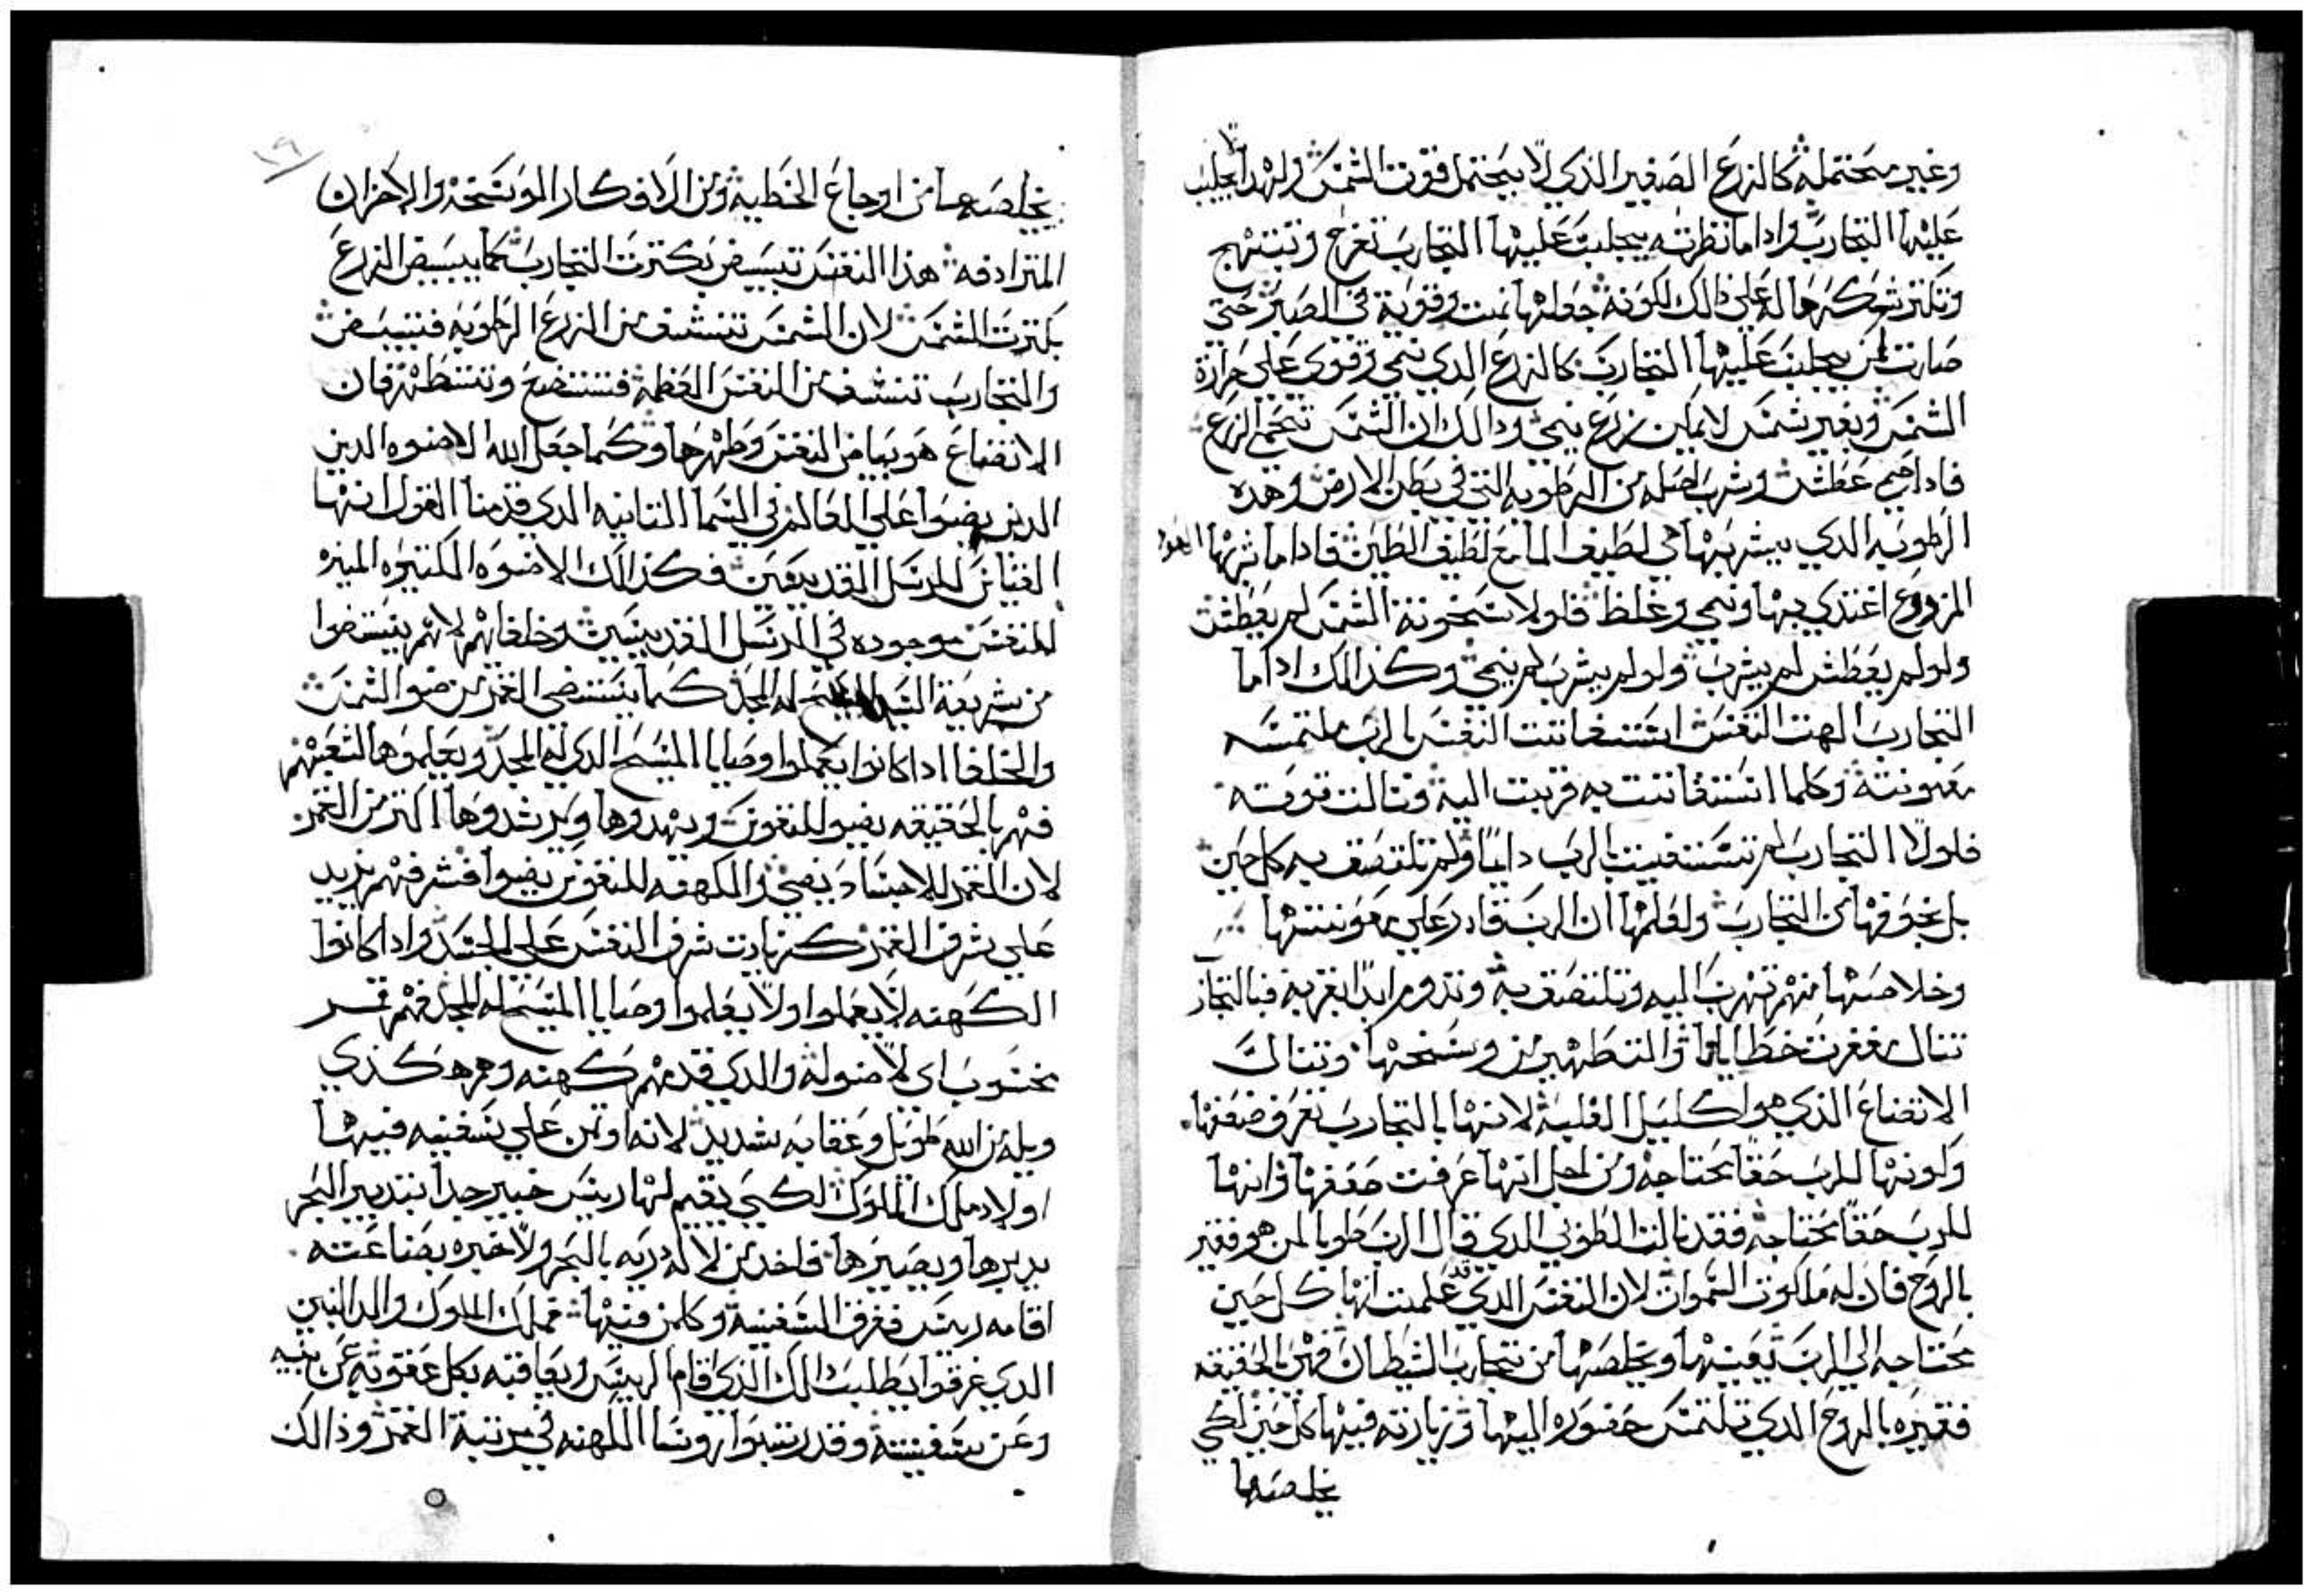 وغير محتمله كالزرع الصغير الذي لا يحتمل قوت الشمس ولهدا يجلب
عليها التجارب وادا ما نظرته يجلب عليها التجارب تفرح وتبتهج
وتكتر شكرها له علي دالك لكونه جعلها نمت وقوية في الصبر حتي
صارت لمن يجلب عليها التجارب كالزرع الدي نمي وقوي علي حرارة
الشمس وبغير شمس لا يمكن زرع ينمي ودالك ان الشمس تحمي الزرع
فادا حمي عطش وشرب اصله من الرطوبه التي في بطن الارض وهده
الرطوبه الدي يشربها هي لطيف الما مع لطيف الطين فادا ما شربها
المزروع اغتدي بها ونمي وغلظ فلولا سخونة الشمس لم يعطش
ولو لم يعطش لم يشرب ولو لم يشرب لم ينمي وكذالك ادا ما
التجارب الهت النفس استغاتت النفس بالرب ملتمسه
معونته وكلما استغاتت به قربت اليه ونالت قوته
فلولا التجارب لم تستغيت بالرب دايما ولم تلتصق به كل حين
بل بخوفها من التجارب ولعلمها ان الرب قادر علي معونتها
وخلاصها منهم تهرب اليه وتلتصق به وتدوم ابدا بقربه فبالتجار
تنال مغفرت خطاياها والتطهير من وسخها وتنال
الاتضاع الذي هو اكليل الغلبه لانها بالتجارب تعرف ضعفها
وكونها للرب حقا محتاجه ومن اجل انها عرفت ضعفها وانها
للرب حقا محتاجه فقد نالت الطوبي الدي قال الرب طوبا لمن هو فقير
بالروح فان له ملكوت السموات لان النفس الدي قد علمت انها كل حين
محتاجه الي الرب يعينها ويخلصها من تجارب الشيطان فهي بالحقيقه
فقيره بالروح الدي تلتمس حضوره اليها وزيارته فيها كل حين لكي
يخلصها
يخلصها من اوجاع الخطية ومن الافكار الموسخه والاحزان
المترادفه هذا النفس تبيض بكترت التجارب كما يبيض الزرع
بكترت الشمس لان الشمس تنشف من الزرع الرطوبه فتبيض
والتجارب تنشف من النفس العظمه فتتضع وتتطهر فان
الاتضاع هو بياض النفس وطهرها وكما جعل الله الاضوه الدين
الدين يضوا علي العالم في السما التانيه الدي قدمنا القول انها
القياس للرسل القديسين فكذالك الاضوه الكتيره المنيره
للنفس موجوده في الرسل القديسين وخلفاهم لانهم يستضوا
من شريعة السيد المسيح له المجد كما يستضي القمر من ضو الشمس
والخلفا ادا كانوا يعملوا وصايا المسيح الدي له المجد ويعلموها لشعبهم
فهم بالحقيقه يضيوا للنفوس ويهدوها ويرشدوها اكتر من القمر
لان القمر للاجساد يضي والكهنه للنفوس يضيوا فشرفهم يزيد
علي شرف القمر كزيادت شرف النفس علي الجسد وادا كانوا
الكهنه لا يعملوا ولا يعلموا وصايا المسيح له المجد فهم قمر
مخسوب اي لا ضو له والدي قدمهم كهنه وهم هكذي
ويله من الله طويل وعقابه شديد لانه اوتمن علي سفينه فيها
اولاد ملك الملوك لكي يقيم لها ريس خبير جدا بتدبير البحر
يدبرها ويصيرها فاخد من لا له دربه بالبحر ولا خبره بصناعته
اقامه ريس فغرق السفينة وكلمن فيها فملك الملوك والد البنين
الدي غرقوا يطلب دالك الذي اقام الريس ويعاقبه بكل عقوبه عن بنيه
وعن سفينته وقد رتبوا روسا الكهنه في مرتبة القمر وذالك